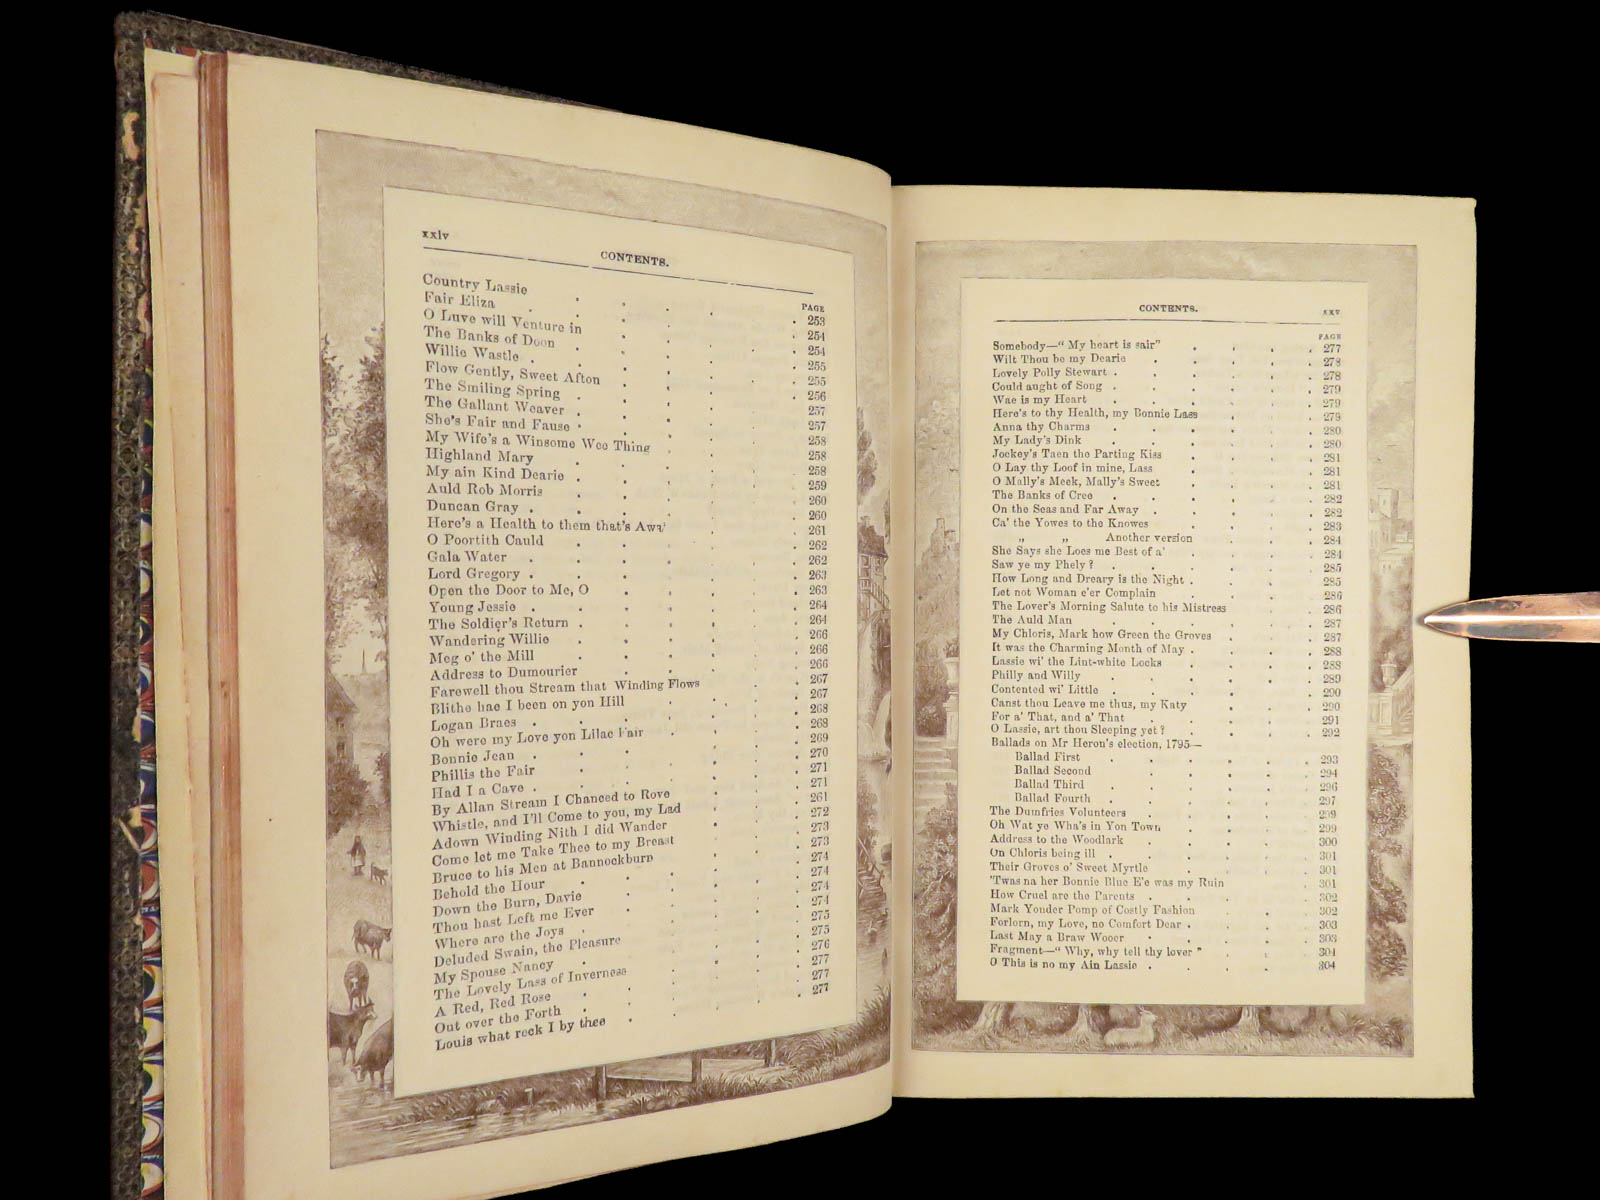 xxiv
CONTENTS.
PAGE
Country Lassie . . . . . 253
Fair Eliza . . . . . 254
O Luve will Venture in . . . . 254
The Banks of Doon . . . . 255
Willie Wastle . . . . . 255
Flow Gently, Sweet Afton . . . . 256
The Smiling Spring . . . . 257
The Gallant Weaver . . . . 257
She's Fair and Fause . . . . 258
My Wife's a Winsome Wee Thing . . . 258
Highland Mary . . . . 258
My ain Kind Dearie . . . . 259
Auld Rob Morris . . . . 260
Duncan Gray . . . . . 260
Here's a Health to them that's Awa' . . 261
O Poortith Cauld . . . . 262
Gala Water . . . . . 262
Lord Gregory . . . . . 263
Open the Door to Me, O . . . . 263
Young Jessie . . . . . 264
The Soldier's Return . . . . 264
Wandering Willie . . . . 266
Meg o' the Mill . . . . 266
Address to Dumourier . . . . 266
Farewell thou Stream that Winding Flows . . 267
Blithe hae I been on yon Hill . . . 267
Logan Braes . . . . . 268
Oh were my Love yon Lilac Fair . . . 268
Bonnie Jean . . . . . 269
Phillis the Fair . . . . 270
Had I a Cave . . . . . 271
By Allan Stream I Chanced to Rove . . . 271
Whistle, and I'll Come to you, my Lad . . 261
Adown Winding Nith I did Wander . . . 272
Come let me Take Thee to my Breast . . 273
Bruce to his Men at Bannockburn . . . 273
Behold the Hour . . . . 274
Down the Burn, Davie . . . . 274
Thou hast Left me Ever . . . . 274
Where are the Joys . . . . 274
Deluded Swain, the Pleasure . . . 275
My Spouse Nancy . . . . 275
The Lovely Lass of Inverness . . . 276
A Red, Red Rose . . . . 277
Out over the Forth . . . . 277
Louis what reck I by thee . . . . 277
CONTENTS. xxv
PAGE
Somebody—“ My heart is sair” . . . . 277
Wilt Thou be my Dearie . . . . . 278
Lovely Polly Stewart . . . . . 278
Could aught of Song . . . . . 279
Wae is my Heart . . . . . 279
Here's to thy Health, my Bonnie Lass . . . 279
Anna thy Charms . . . . . 280
My Lady's Dink . . . . . 280
Jockey's Taen the Parting Kiss . . . . 281
O Lay thy Loof in mine, Lass . . . . 281
O Mally's Meek, Mally's Sweet . . . . 281
The Banks of Cree . . . . . 282
On the Seas and Far Away . . . . 282
Ca' the Yowes to the Knowes . . . . 283
„ „ Another version . . . 284
She Says she Loes me Best of a' . . . . 284
Saw ye my Phely ? . . . . . 285
How Long and Dreary is the Night . . . . 285
Let not Woman e'er Complain . . . . 286
The Lover's Morning Salute to his Mistress . . 286
The Auld Man . . . . . 287
My Chloris, Mark how Green the Groves . . . 287
It was the Charming Month of May . . . . 288
Lassie wi' the Lint-white Locks . . . . 288
Philly and Willy . . . . . 289
Contented wi' Little . . . . . 290
Canst thou Leave me thus, my Katy . . . 290
For a' That, and a' That . . . . 291
O Lassie, art thou Sleeping yet ? . . . . 292
Ballads on Mr Heron's election, 1795—
Ballad First . . . . . 293
Ballad Second . . . . 294
Ballad Third . . . . . 296
Ballad Fourth . . . . . 297
The Dumfries Volunteers . . . . 299
Oh Wat ye Wha's in Yon Town . . . . 299
Address to the Woodlark . . . . 300
On Chloris being ill . . . . . 301
Their Groves o' Sweet Myrtle . . . . 301
'Twas na her Bonnie Blue E'e was my Ruin . . 301
How Cruel are the Parents . . . . 302
Mark Yonder Pomp of Costly Fashion . . . 302
Forlorn, my Love, no Comfort Dear . . . . 303
Last May a Braw Wooer . . . . 303
Fragment—“ Why, why tell thy lover ” . . . 304
O This is no my Ain Lassie . . . . 304